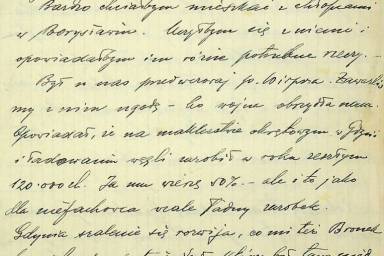 Bardzo chciałbym mieszkać z chłopcami
w Borysławiu. Uczyłbym się z niemi i
opowiadałbym im różne potrzebne rzeczy. –
Był u nas przedwczoraj p. Wirpsza. Zawarliś
my z nim ugodę – bo wojna obrzydła nam.
Opowiadał, że na maklerstwie okrętowym w Gdyni
i ładowaniu węgli zarobił w roku zeszłym
120.000 zł. Ja mu wierzę 50% – ale i to jako
dla niefachowca wcale ładny zarobek.
Gdynia szalenie się rozwija, co mi też Bronek
był